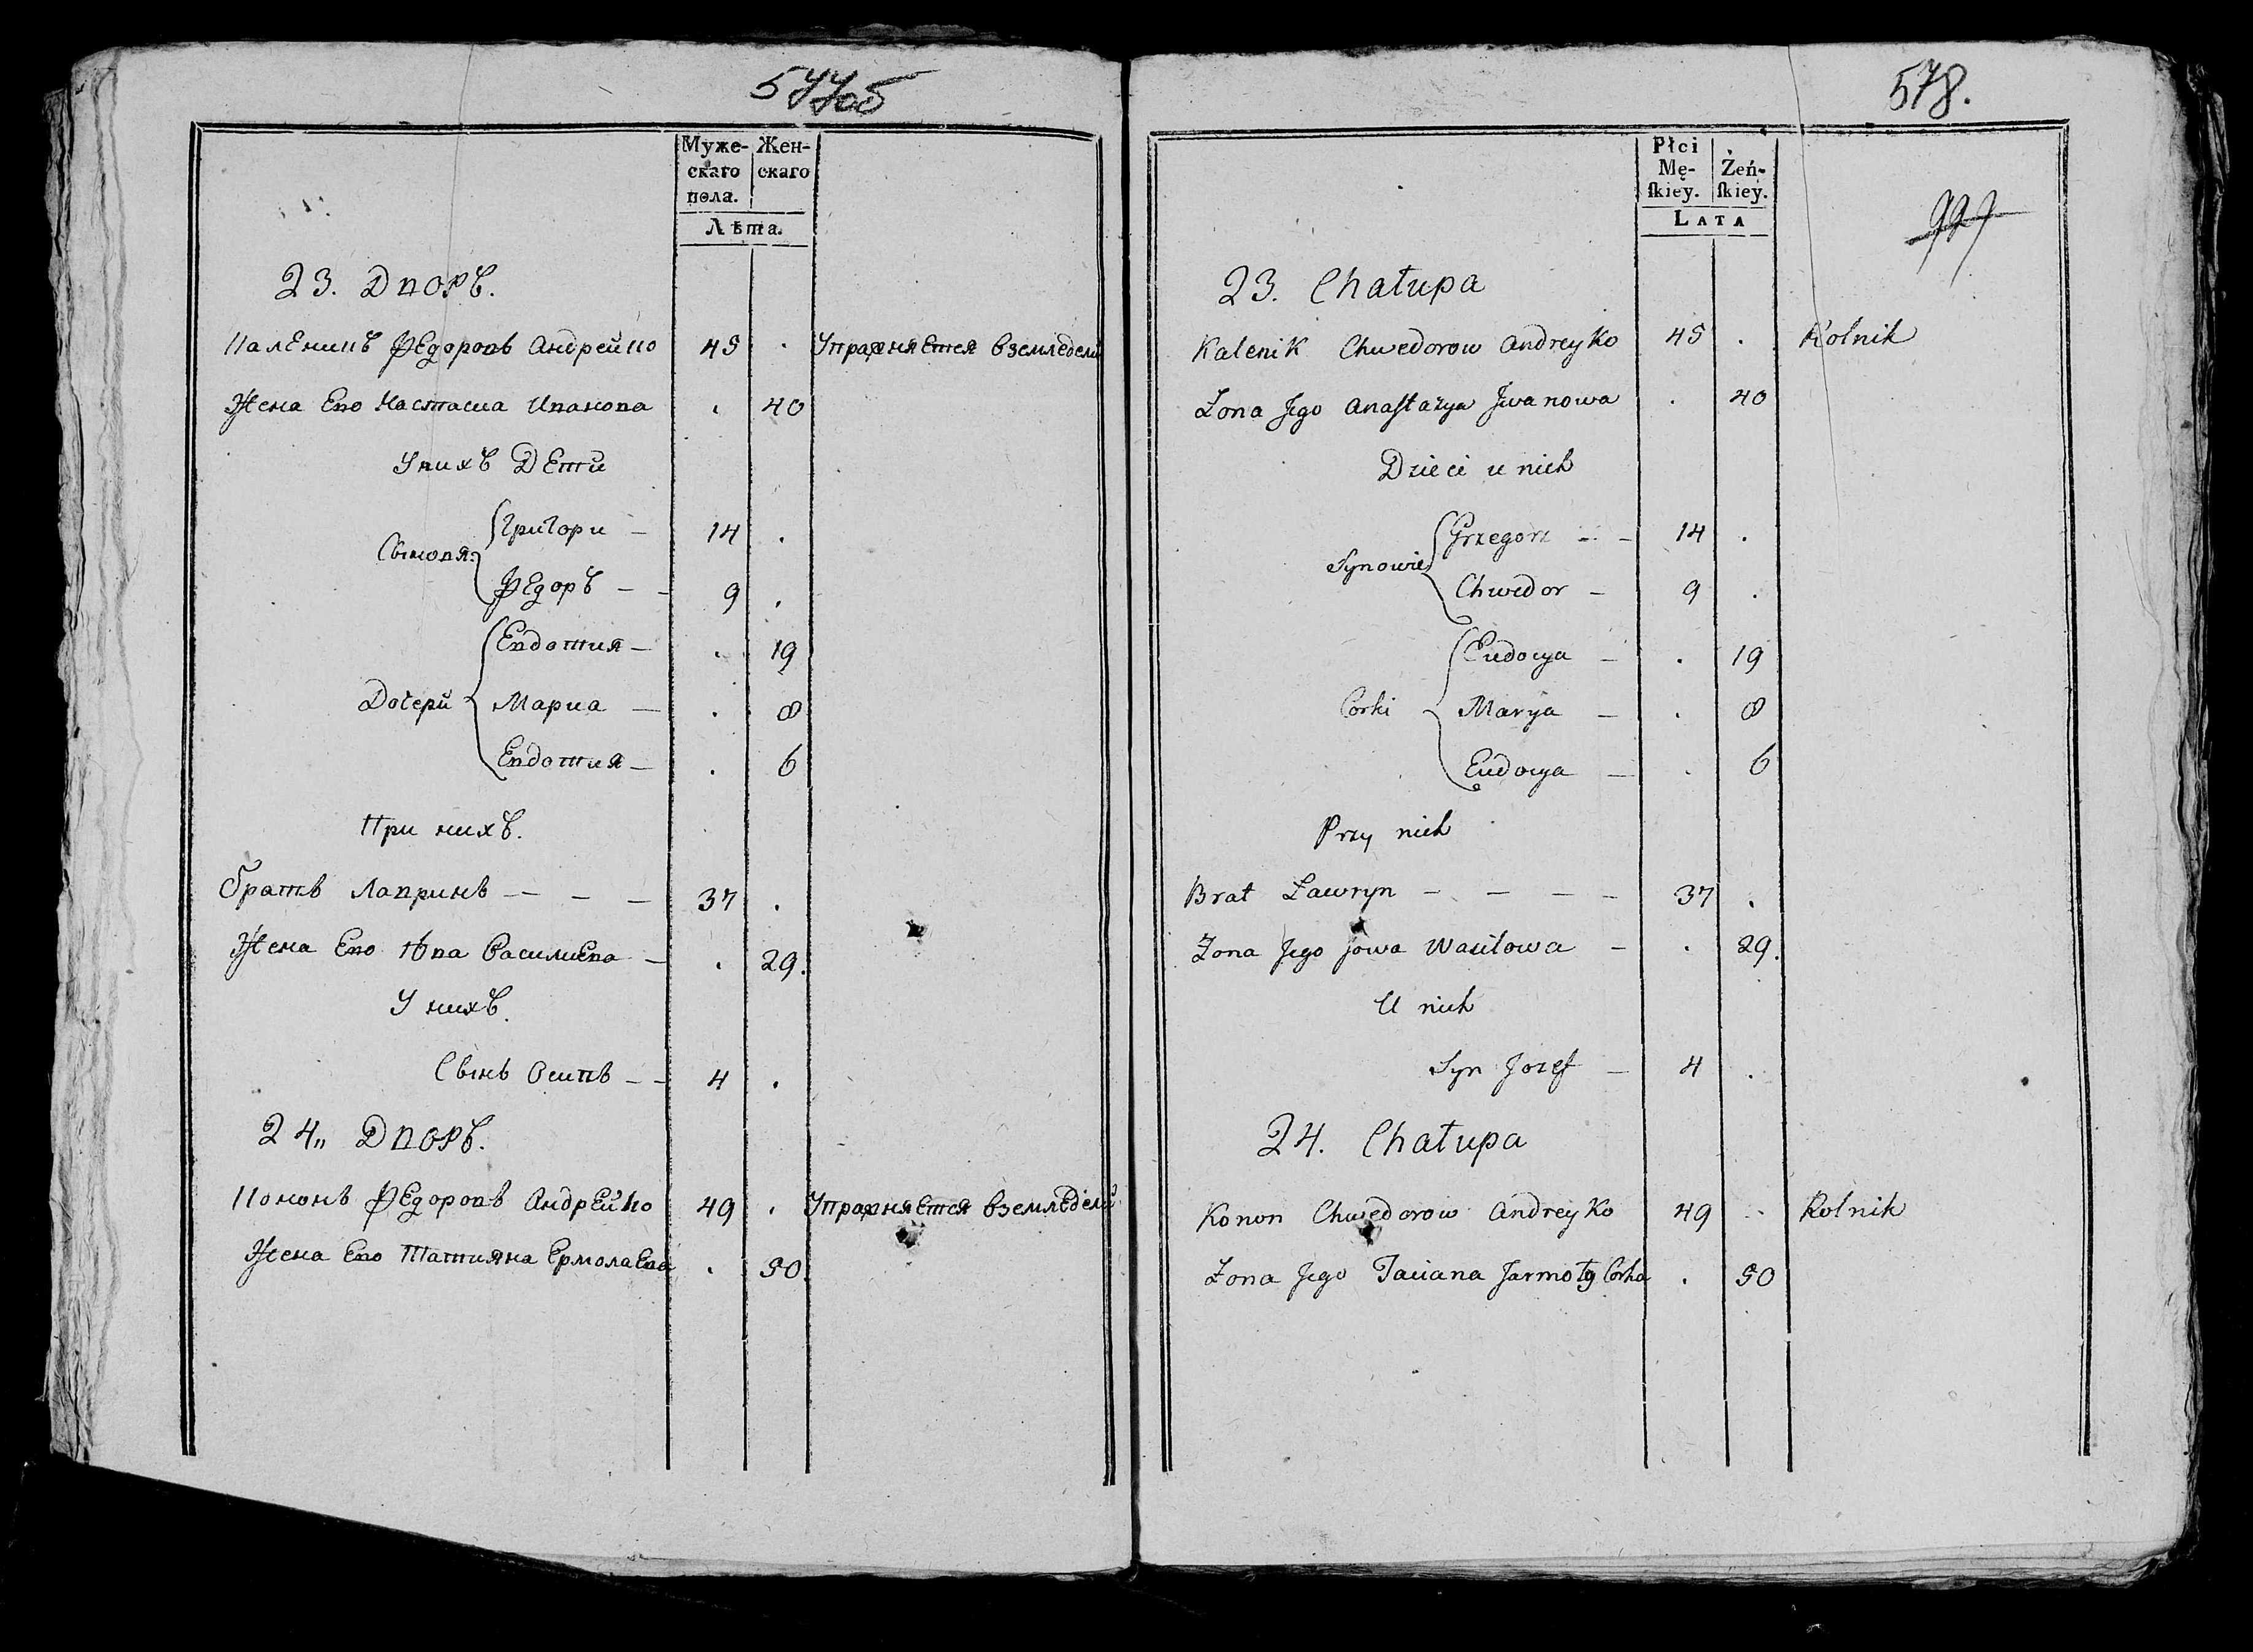 577об
Муже-
скаго
пола.
Жен-
скаго
Лѣта.
23. Дворъ.
Каленикъ Федоровъ Андрейко 45 . Упражняется вземледели
Жена Ево Настасиа Иванова . 40
Унихъ Дети
Сыновя
Григори — 14 .
Федоръ — — 9 .
Дочери
Евдотия — . 19
Мариа — . 8
Евдотия — . 6
При нихъ.
братъ Лавринъ — — — — 37 .
Жена Ево Юва Василиева — . 29.
У нихъ.
Сынъ Осипъ — — 4 .
24„ Дворъ.
Кононъ Федоровъ Андрейко 49 . Упражняется вземледелй
Жена Ево Татияна Ермолаева . 50
578.
Płci
Mę-
ſkiey.
Żeń-
ſkiey.
LATA
23. Chałupa
Kalenik Chwedorow Andreyko 45 . Rolnik
Żona Jego Anaſtazya Jwanowa . 40
Dzieci u nich
Synowie
Grzegorz — — 14 .
Chwedor — 9 .
Corki
Eudocya — . 19
Marya — . 8
Eudocya — . 6
Przy nich
Brat Ławryn — — — — 37 .
Żona Jego Jowa Wasilowa — . 29.
U nich
Syn Jozef — 4 .
24. Chałupa
Konon Chwedorow Andreyko 49 . Rolnik
Żona Jego Taciana Jarmoły Corka . 50